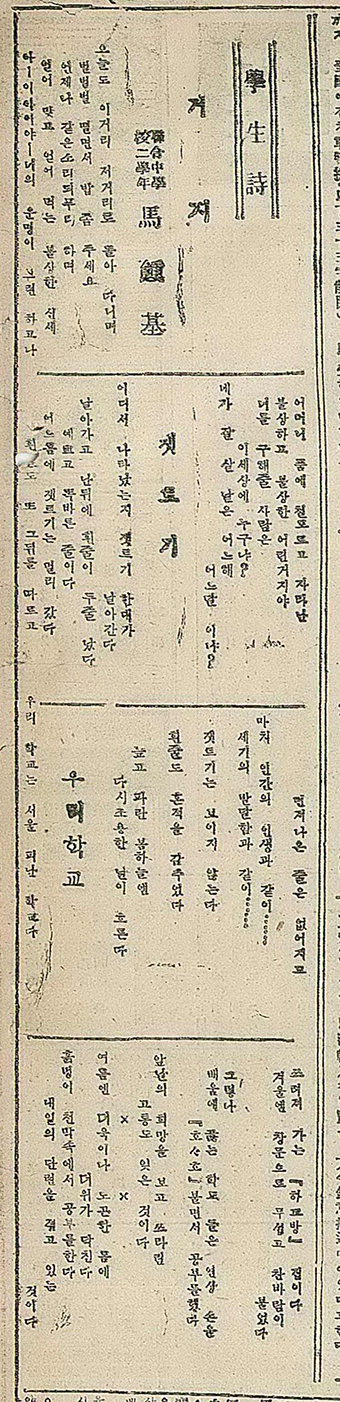 學生詩
거지
聯合中學
校二學年
馬鍾基
오늘도 이거리 저거리로 돌아 다니며
벌벌벌 떨면서 밥 좀 주세요
언제나 같은소리되푸리 하며
얻어 맞고 얻어 먹는 불상한 신세
아ー이아이야ー너의 운명이 보련 하고나
어머니 품에 젼모르고 자라난
불상하고 불상한 어린거지야
너를 구해줄 사람은
이세상에 누구냐?
네가 잘 살 날은 어느해
어느달 이냐?
젯트기
어디서 나타났는지 젯트기 한대가
날아간다
날아가고 난뒤에 흰줄이 두줄 났다
예쁘고 똑바른 줄이다
어느틈에 젯트기는 멀리 갔다
흰줄도 또 그뒤를 따르고
먼저나온 줄은 없어지고
마치 인간의 인생과 같이……
세기의 발달함과 같이……
젯트기는 보이지 않는다
흰줄도 흔적을 감추었다
높고 파란 봄하늘엔
다시조용한 날이 흐른다
우리학교
우리 학교는 서울 피난 학교다
쓰러져 가는 『하꼬방』 집이다
겨울엔 창문으로 무섭고 찬바람이
불었다
그렇나
배움에 끓는 학도 들은 언상 손을
『호々호』불면서 공부를했다
앞날의 희망을 보고 쓰라린
고통도 잊은 것이다
× ×
여름엔 더욱이나 도끈한 몸에
더위가 닥친다
흠명이 천막속에서 공부를한다
내일의 단련을 겪고 있는
것이다